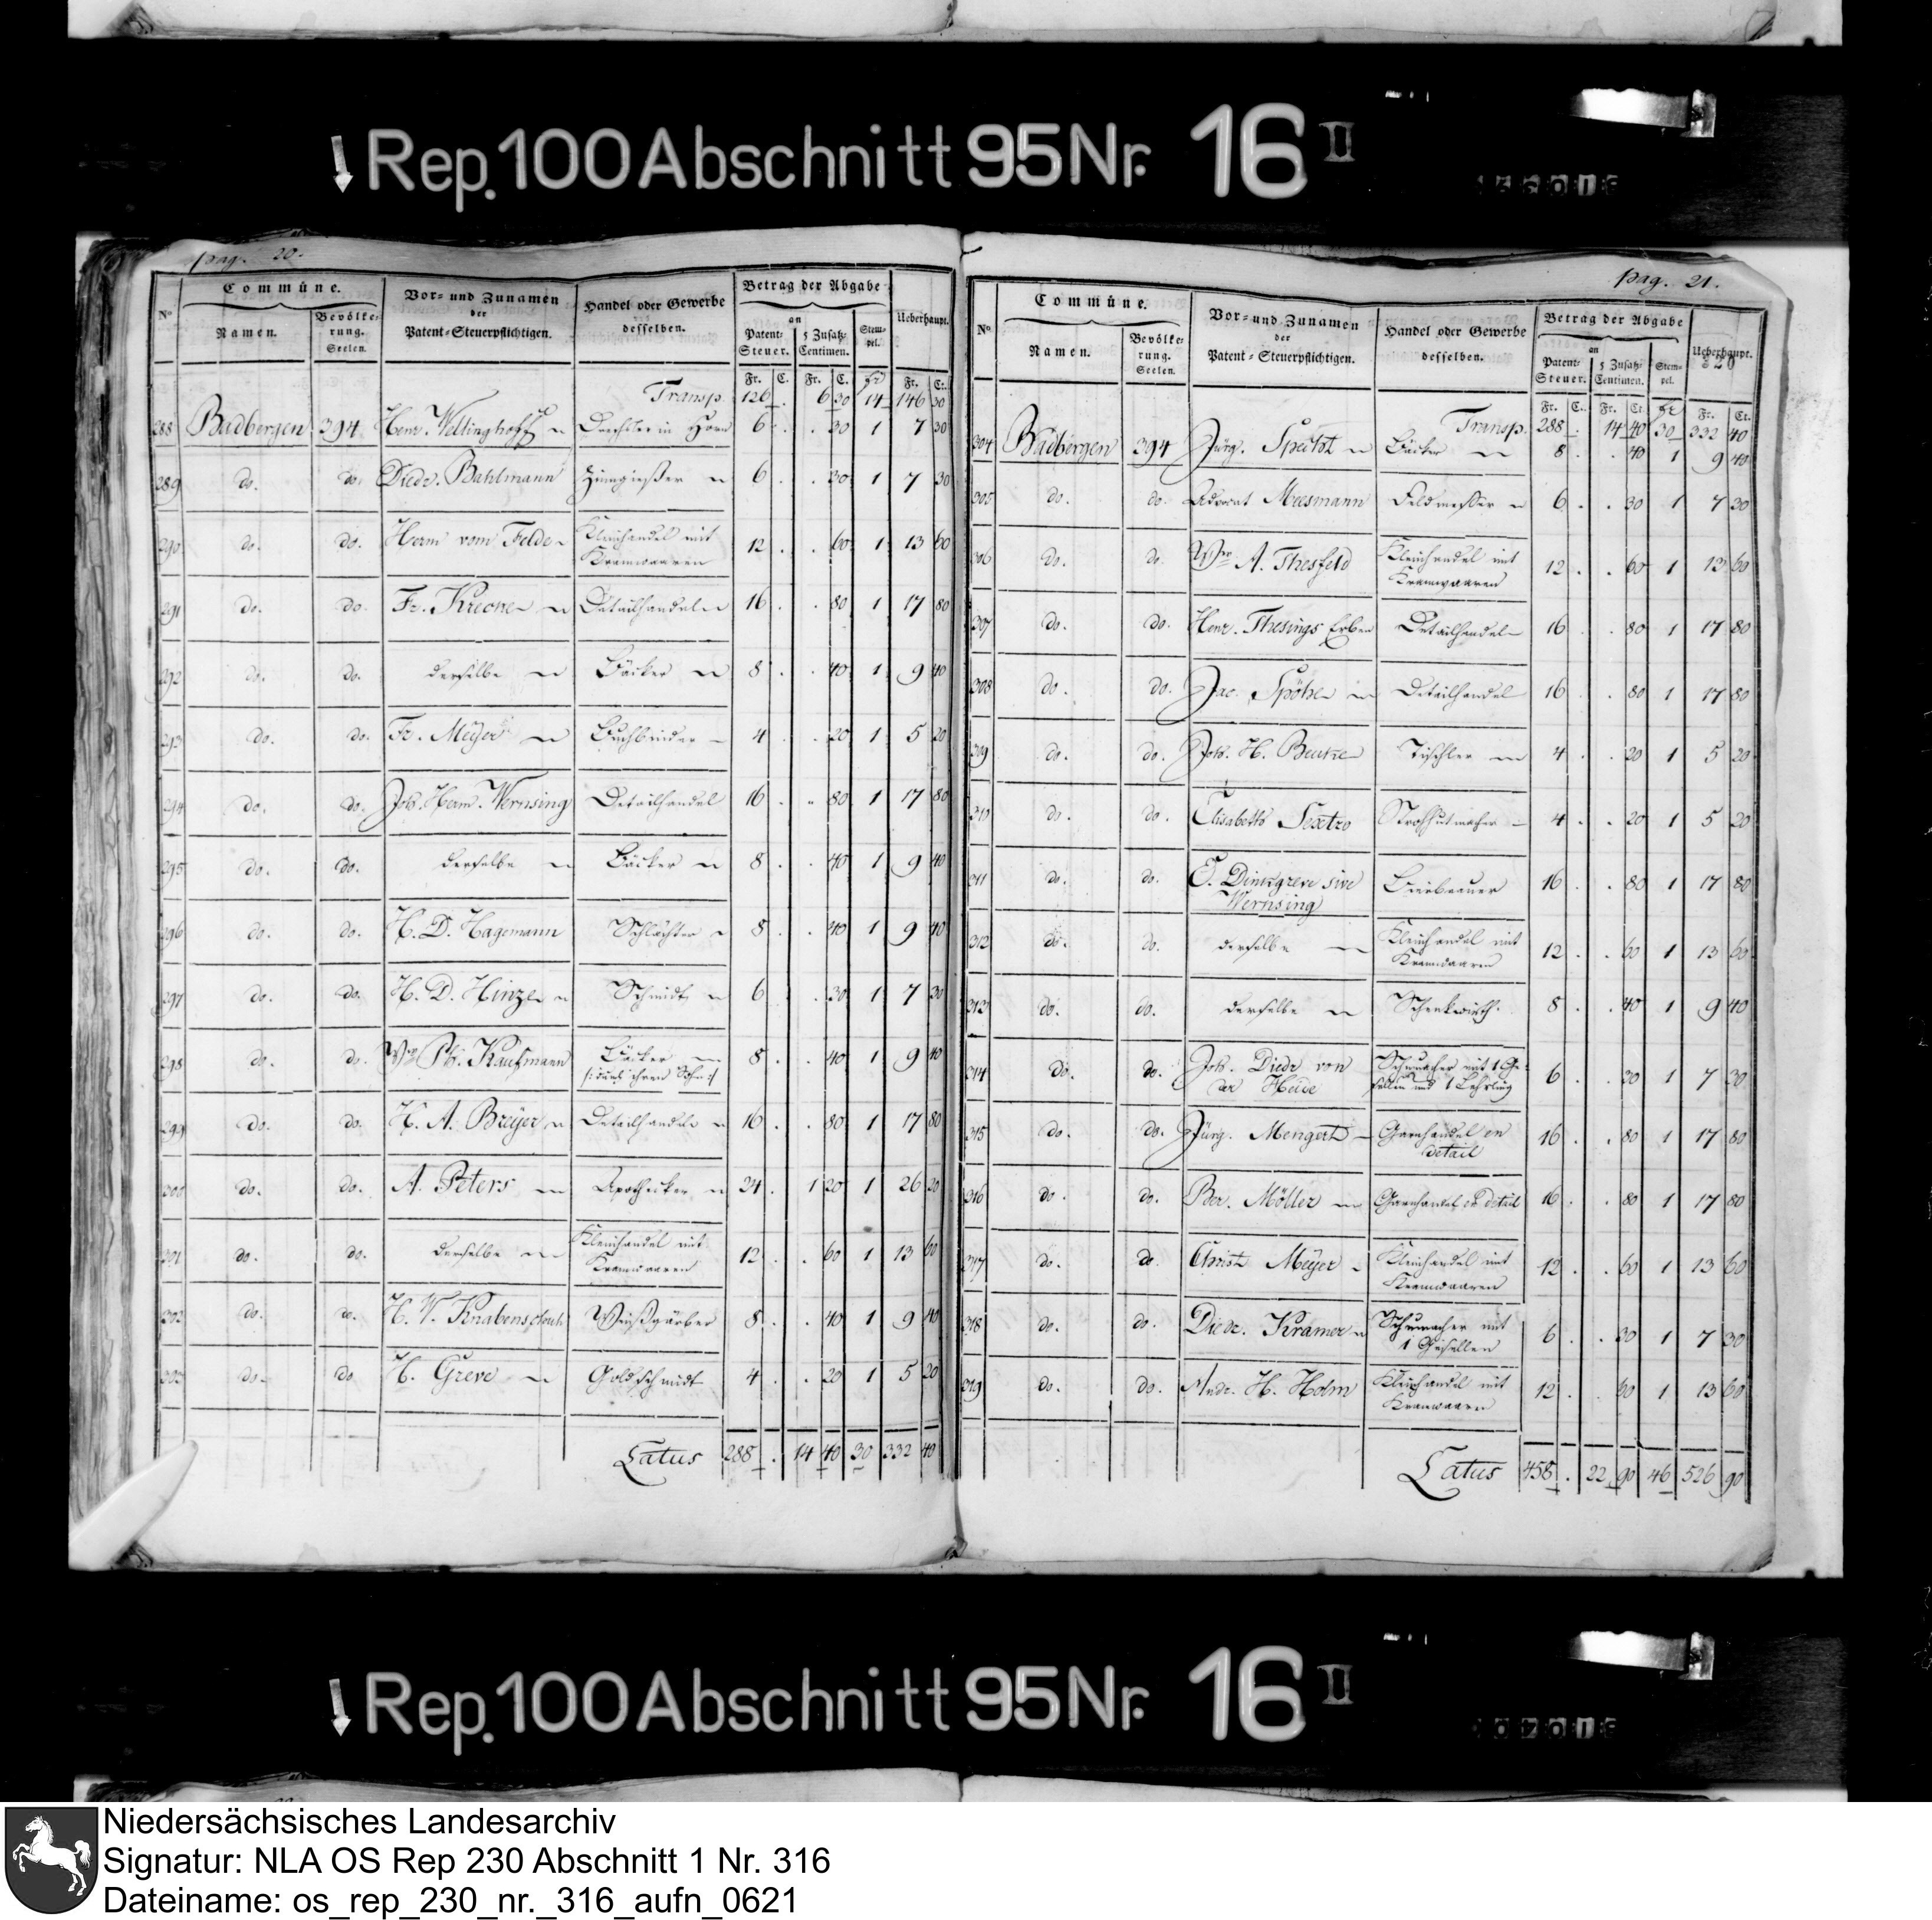 Rep. 100 Abschnitt 95 Nr. 16 II
pag. 20.
Nº Commüne. Vor- und Zunamen der Patent-Steuerpflichtigen. Handel oder Gewerbe desselben. Betrag der Abgabe Ueberhaupt.
Namen. Bevölkerung. Seelen. an Patent-Steuer. 5 Zusatz-Centimen. Stempel.
Fr. C. Fr. C. fr Fr. Ct.
Transp. 126 . 6 30 14 146 30
288 Badbergen 394 Henr. Wellinghoff Drechsler in Horn 6 . . 30 1 7 30
289 do. do. Diedr. Bahlmann Zinngießer 6 . . 30 1 7 30
290 do. do. Herm vom Felde Kleinhandel mit Kramwaaren 12 . . 60 1 13 60
291 do. do. Fr. Krecke Detailhandel 16 . . 80 1 17 80
292 do. do. derselbe Bäcker 8 . . 40 1 9 40
293 do. do. Fr. Meyer Buchbinder 4 . . 20 1 5 20
294 do. do. Joh. Herm. Wernsing Detailhandel 16 . . 80 1 17 80
295 do. do. derselbe Bäcker 8 . . 40 1 9 40
296 do. do. H. D. Hagemann Schlächter 8 . . 40 1 9 40
297 do. do. H. D. Hinze Schmidt 6 . . 30 1 7 30
298 do. do. Ww Ph. Kaufmann Bäcker /: durch ihren Sohn :/ 8 . . 40 1 9 40
299 do. do. H. A. Breyer Detailhandel 16 . . 80 1 17 80
300 do. do. A. Peters Apothecker 24 . 1 20 1 26 20
301 do. do. derselbe Kleinhandel mit Kramwaaren 12 . . 60 1 13 60
302 do. do. H. W. Knabenschuh Weißgärber 8 . . 40 1 9 40
303 do. do H. Greve Goldschmidt 4 . . 20 1 5 20
Latus 288 . 14 40 30 332 40
pag. 21.
Nº Commüne. Vor- und Zunamen der Patent-Steuerpflichtigen. Handel oder Gewerbe desselben. Betrag der Abgabe Ueberhaupt.
Namen. Bevölkerung. Seelen. an Patent-Steuer. 5 Zusatz-Centimen. Stempel.
Fr. C. Fr. Ct. fr Fr. Ct.
Transp. 288 . 14 40 30 332 40
304 Badbergen 394 Jürg. Specht Bäcker 8 . . 40 1 9 40
305 do. do. Advocat Meesmann Feldmesser 6 . . 30 1 7 30
306 do. do. A. Thesfeld Kleinhandel mit Kramwaaren 12 . . 60 1 13 60
307 do. do. Henr. Thesings Erben Detailhandel 16 . . 80 1 17 80
308 do. do. Jac. Detailhandel 16 . . 80 1 17 80
309 do. do. Joh. H. Beucke Tischler 4 . . 20 1 5 20
310 do. do. Elisabeth Sextro Strohhutmacher 4 . . 20 1 5 20
311 do. do. Dinkgreve sive Wernsing Bierbrauer 16 . . 80 1 17 80
312 do. do. derselbe Kleinhandel mit Kramwaaren 12 . . 60 1 13 60
313 do. do. derselbe Schenkwirth. 8 . . 40 1 9 40
314 do. do. Joh. Diedr von der Heide Schumacher mit 1 Gesellen und 1 Lehrling 6 . . 30 1 7 30
315 do. do. Jürg. Mengert Garnhandel en detail 16 . . 80 1 17 80
316 do. do. Ber. Möller Garnhandel en detail 16 . . 80 1 17 80
317 do. do. Christ Meyer Kleinhandel mit Kramwaaren 12 . . 60 1 13 60
318 do. do. Diedr. Kramer Schumacher mit 1 Gesellen 6 . . 30 1 7 30
319 do. do. Andr. H. Holm Kleinhandel mit Kramwaaren 12 . . 60 1 13 60
Latus 458 . 22 90 46 526 90
Rep. 100 Abschnitt 95 Nr. 16 II
Niedersächsisches Landesarchiv
Signatur: NLA OS Rep 230 Abschnitt 1 Nr. 316
Dateiname: os_rep_230_nr._316_aufn_0621